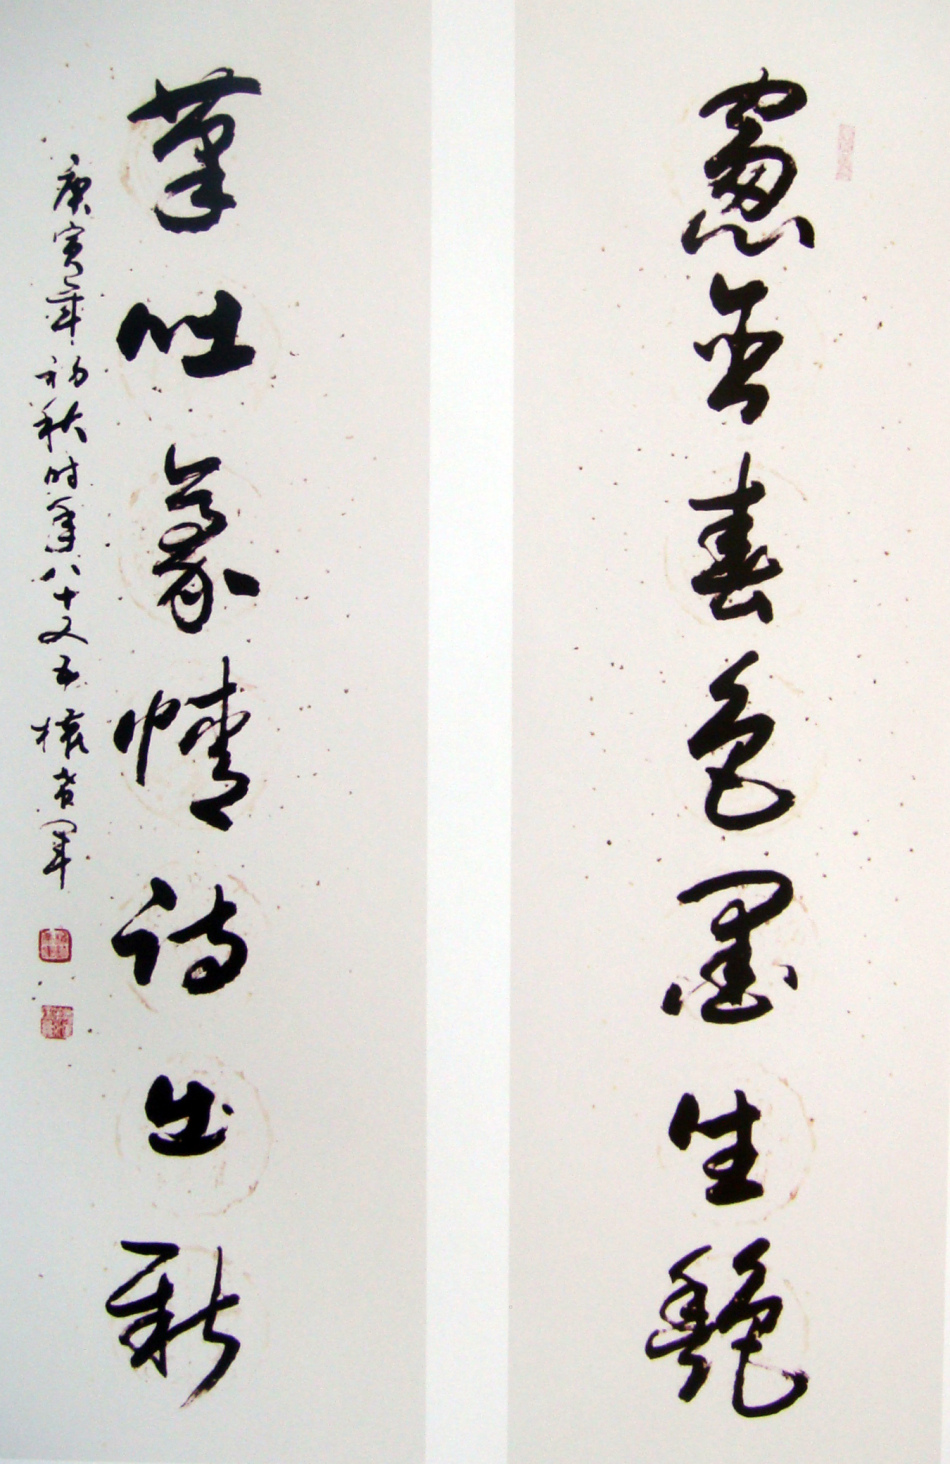 窻含春色墨生艷
筆吐豪情诗出新
庚寅年初秋时年八十又五